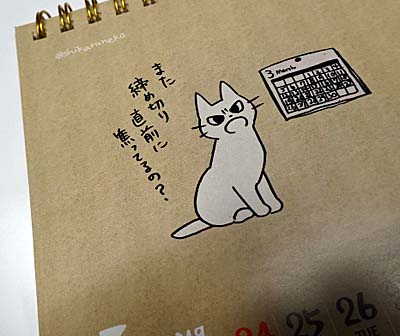 @shikaruneko
また
締め切り
直前に
焦ってるの?
3 March
24 25 26
TUE